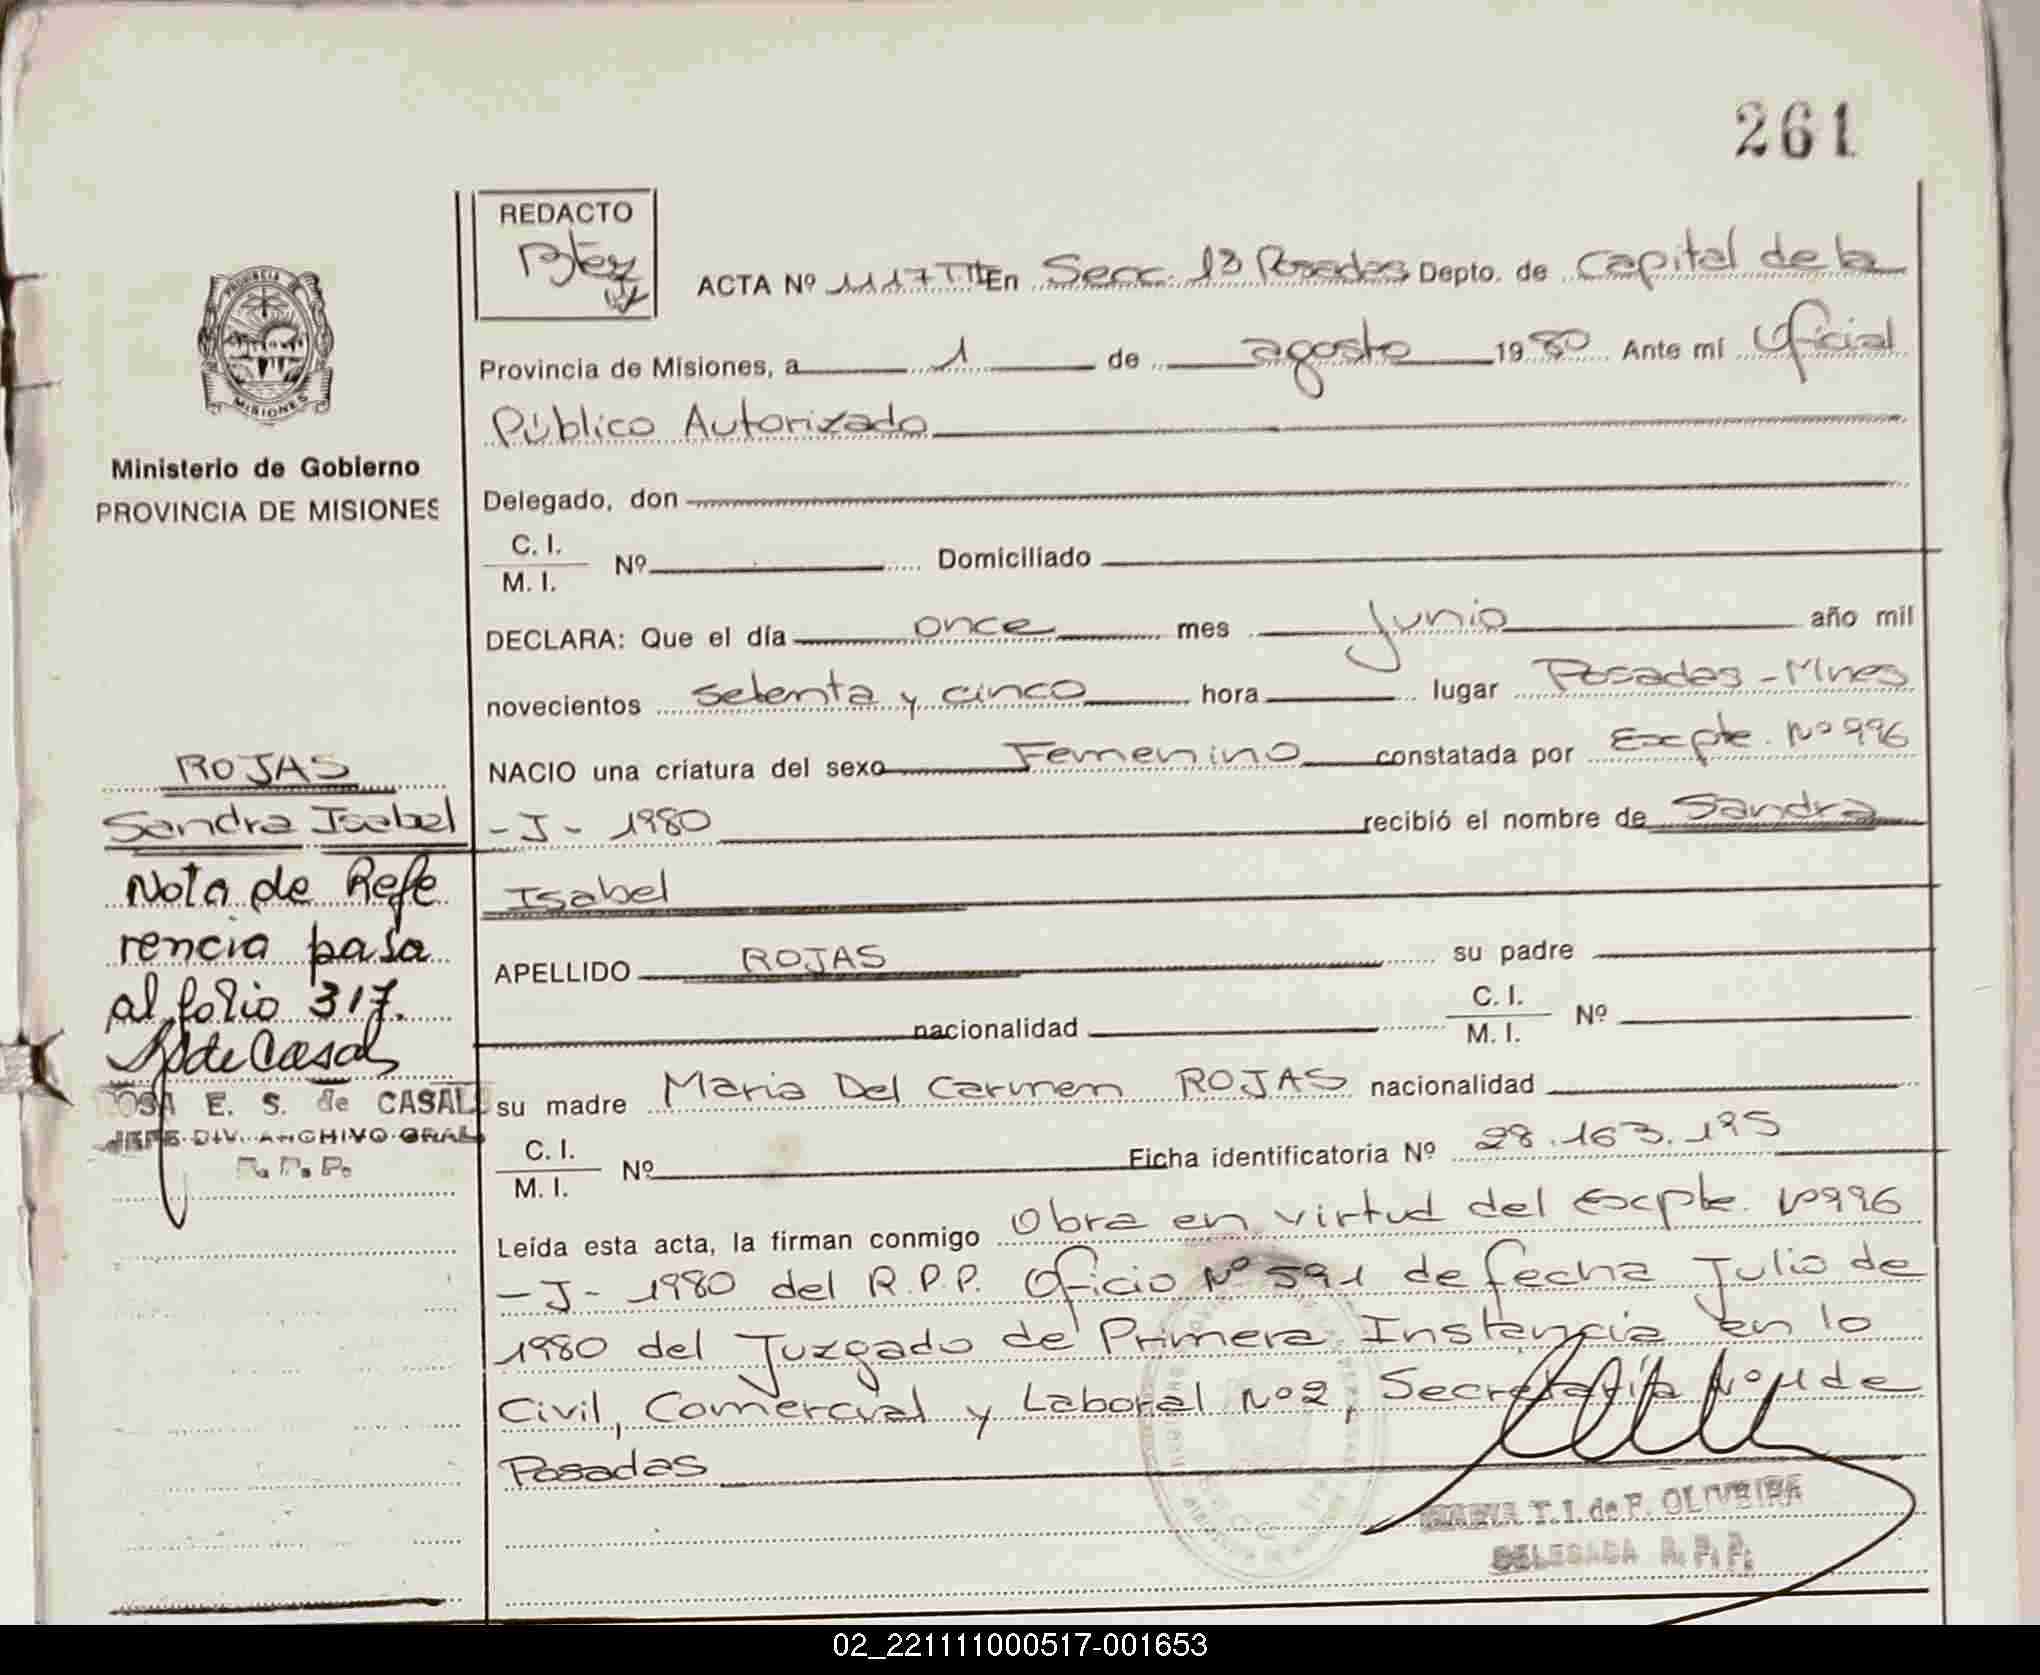 261
REDACTO
ACTA Nº 1117 T.III En Secc. 13 Posadas Depto. de Capital de la
Provincia de Misiones, a 1 de agosto 1980 Ante mí Oficial
Público Autorizado
Delegado, don
C. I.
M. I. Nº Domiciliado
DECLARA: Que el día once mes Junio año mil
novecientos setenta y cinco hora lugar Posadas - Mnes
NACIO una criatura del sexo Femenino constatada por Excpte. Nº 996
- J - 1980 recibió el nombre de Sandra
Isabel
APELLIDO ROJAS su padre
nacionalidad C. I.
M. I. Nº
su madre Maria Del Carmen ROJAS nacionalidad
C. I.
M. I. Nº Ficha identificatoria Nº 28.163.195
Leída esta acta, la firman conmigo Obra en virtud del Excpte. Nº 996
- J - 1980 del R.P.P. Oficio Nº 591 de fecha Julio de
1980 del Juzgado de Primera Instancia en lo
Civil, Comercial y Laboral Nº 2, Secretaría Nº 4 de
Posadas
MARIA T. I. de F. OLIVEIRA
DELEGADA R. P. P.
PROVINCIA
MISIONES
Ministerio de Gobierno
PROVINCIA DE MISIONES
ROJAS
Sandra Isabel
Nota de Refe
rencia pasa
al folio 317.
de Casal
ROSA E. S. de CASAL
JEFE DIV. ARCHIVO GRAL
R. P. P.
02_221111000517-001653